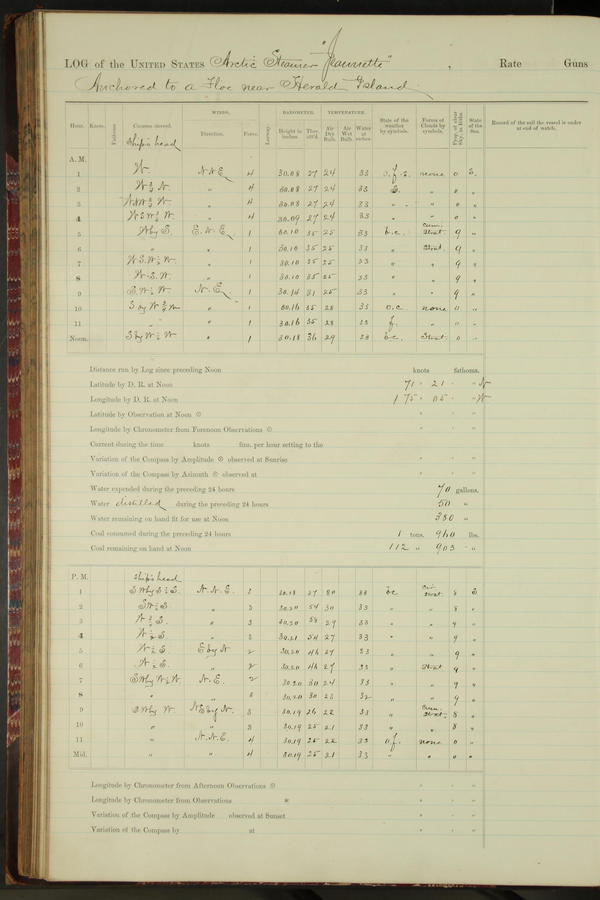 LOG of the UNITED STATES Arctic Steamer "Jeannette", Rate Guns
Anchored to a Floe near Herald Island
Hour. Knots. Fathoms Courses steered. WINDS. Direction. Force. Leeway BAROMETER. Height in inches Ther. att'd. TEMPERATURE. Air Dry Bulb. Air Wet Bulb. Water at surface. State of the weather by symbols. Forms of Clouds by symbols. Prop. of clear Sky, in 10ths State of the Sea. Record of the sail the vessel is under at end of watch.
Ship's head
A. M.
1 W. N.N.E. 4 30.08 27 24 33 o.f.s. none 0 S.
2 W ¾ N. " 4 30.08 27 24 33 " 0 "
3 W.N.W ¾ W. " 4 30.08 27 24 33 " " " 0 "
4 " 4 30.09 27 24 33 " " 0 "
5 W by S. E.N.E. 1 30.10 35 25 33 b.c. Cum. Strat. 9 "
6 " " 1 30.10 35 25 33 " Strat. 9 "
7 W.S.W ½ W. " 1 30.10 35 25 33 " " 9 "
8 W.S.W. " 1 30.10 35 25 33 " " 9 "
9 S.W ½ W. N.E. 1 30.14 31 25 33 " " 9 "
10 S by W ¾ W " 1 30.16 35 28 33 o.c. none 0 "
11 " " 1 30.16 35 28 33 f. " 0 "
Noon. S by W ½ W " 1 30.18 36 29 33 b.c. Strat. 0 "
Distance run by Log since preceding Noon knots fathoms.
Latitude by D. R. at Noon 71 ° 21 ' " N
Longitude by D. R. at Noon 175 ° 05 ' " W
Latitude by Observation at Noon ☉ ° ' "
Longitude by Chronometer from Forenoon Observations ☉ ° ' "
Current during the time knots fms. per hour setting to the
Variation of the Compass by Amplitude ☉ observed at Sunrise ° ' "
Variation of the Compass by Azimuth ☉ observed at ° ' "
Water expended during the preceding 24 hours 70 gallons.
Water distilled during the preceding 24 hours 50 "
Water remaining on hand fit for use at Noon 350 "
Coal consumed during the preceding 24 hours 1 tons. 960 lbs.
Coal remaining on hand at Noon 112 " 903 "
P. M. Ship's head
1 S W by S ½ S. N.N.E. 3 30.18 27 30 33 b.c Cir. Strat. 8 S
2 SW ½ S. " 3 30.20 54 30 33 " " 8 "
3 " 3 30.20 58 29 33 " " 9 "
4 " 3 30.21 54 27 33 " " 9 "
5 W ½ S. E by N 2 30.20 46 27 33 " " 9 "
6 W ½ S. " 2 30.20 46 27 33 " Strat 9 "
7 S W by W ½ W N.E. 2 30.20 30 24 33 " " 9 "
8 " " 3 30.20 30 23 32 " " 9 "
9 S W by W. N E by N. 3 30.19 26 22 33 " Cum. Strat. 8 "
10 " " 3 30.19 25 21 33 " " 8 "
11 " N.N.E. 4 30.19 25 22 33 o.f. none 0 "
Mid. " " 4 30.19 25 21 33 " " 0 "
Longitude by Chronometer from Afternoon Observations ☉ ° ' "
Longitude by Chronometer from Observations * ° ' "
Variation of the Compass by Amplitude observed at Sunset ° ' "
Variation of the Compass by at ° ' "